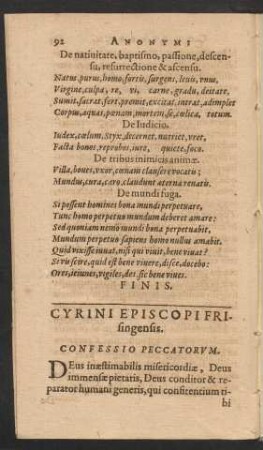 92 ANONYMI
De natiuitate, baptismo, passione, descen-
su, resurrectione & ascensu.
Natus, purus, homo, fortis, surgens, leuis, vnus,
Virgine, culpa, re, vi, carne, gradu, deitate,
Sumit, sacrat, fert, premit, excitat, intrat, adimplet
Corpus, aquas, pœnam, mortem, se, cœlica, totum.
De Iudicio.
Iudex, cœlum, Styx, decernet, nutriet, vret,
Facta bonos, reprobos, iure, quiete, foco.
De tribus inimicis animæ.
Villa, boues, vxor, cœnam clausere vocatis;
Mundus, cura, caro, claudunt æterna renatis.
De mundi fuga.
Si possent homines bona mundi perpetuare,
Tunc homo perpetuo mundum deberet amare:
Sed quoniam nemo mundi bona perpetuabit,
Mundum perpetuo sapiens homo nullus amabit.
Quid vixisse iuuat, nisi qui viuit, bene viuat?
Si vis scire, quid est bene viuere, disce, docebo:
Ores, ieiunes, vigiles, des sic bene viues.
FINIS.
CYRINI EPISCOPI FRI-
singensis.
CONFESSIO PECCATORVM.
DEus inæstimabilis misericordiæ, Deus
immensæ pietatis, Deus conditor & re-
parator humani generis, qui confitentium ti-
bi